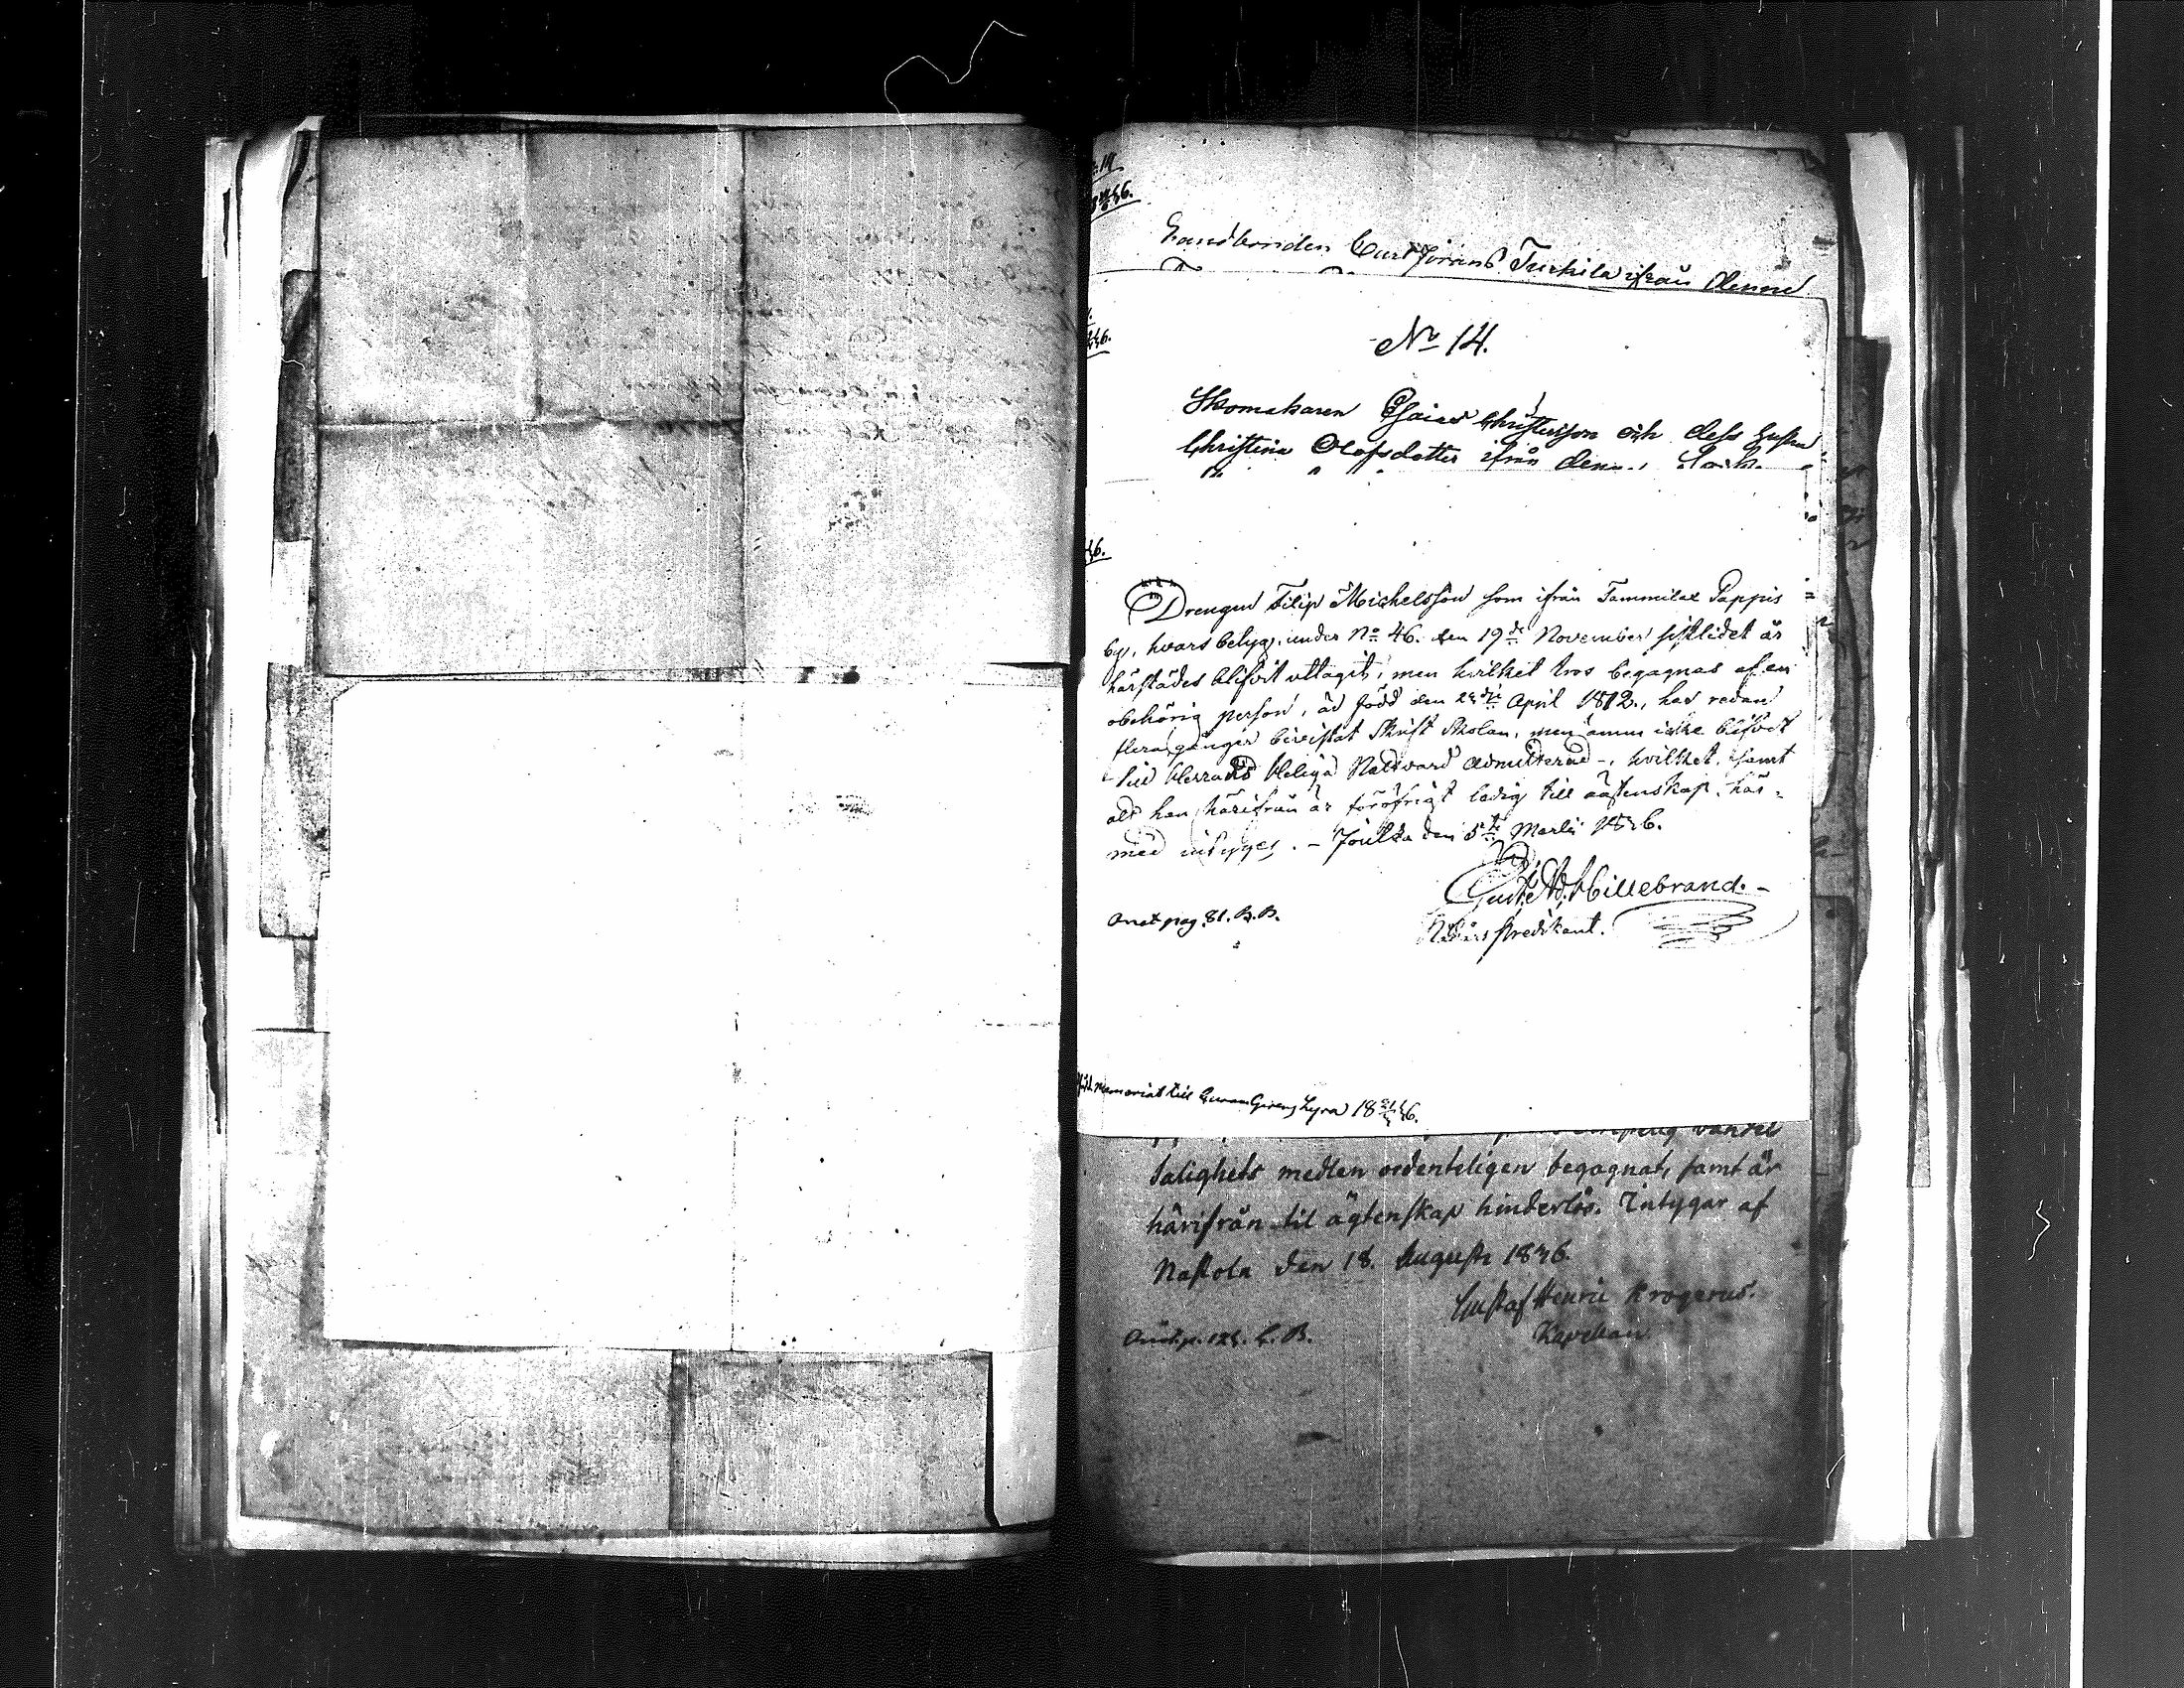 Landbonden Carl Jörans Turkila ifrån denne
No 14.
Skomakaren Esaias Christersson och dess hustru
Christina Olofsdotter ifrån denna Sock.
Drengen Filip Michelsson som ifrån Tammilax Pappis
by, hvars betyg under No 46. den 19de November sistlidet år
härstädes blifvit uttagit, men hvilket tros begagnas af en
obehörig person, är född den April 1812., har redan
flera gånger bivistat Skrift Skolan, men ännu icke blifvit
till Herrans Heliga Nattvard admitterad -, hvilket, samt
att han härifrån är föröfrigt ledig till äktenskap, här-
med intygas. - Jouttza den 5te Martii 1846.
Gust. Ad. Hillebrand. -
Nådårs Predikant.
Anot pag. 81. B.B.
memorial till 18 46.
salighets medlen ordenteligen begagnat, samt är
härifrån til ägtenskap hinderlös. Intygar af
Nastola den 18. Augusti 1846.
Gustaf Henric Krogerus.
Kapellan
Anot. p. 124. B.